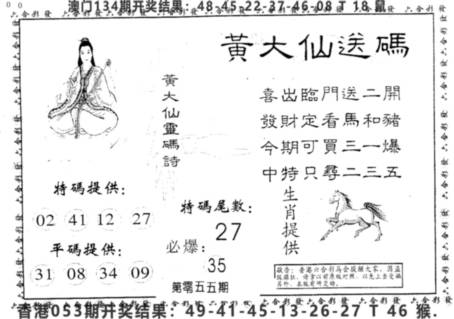 澳门134期开奖结果：48-45-22-37-46-08 T 18 鼠
黃大仙送碼
黃大仙靈碼詩
喜出臨門送二開
發財定看馬和豬
今期可買三一爆
中特只尋二三五
特碼提供：
02 41 12 27
平碼提供：
31 08 34 09
特碼尾數：
27
必爆：
35
第零五五期
生肖提供
香港053期开奖结果：49-41-45-13-26-27 T 46 猴.